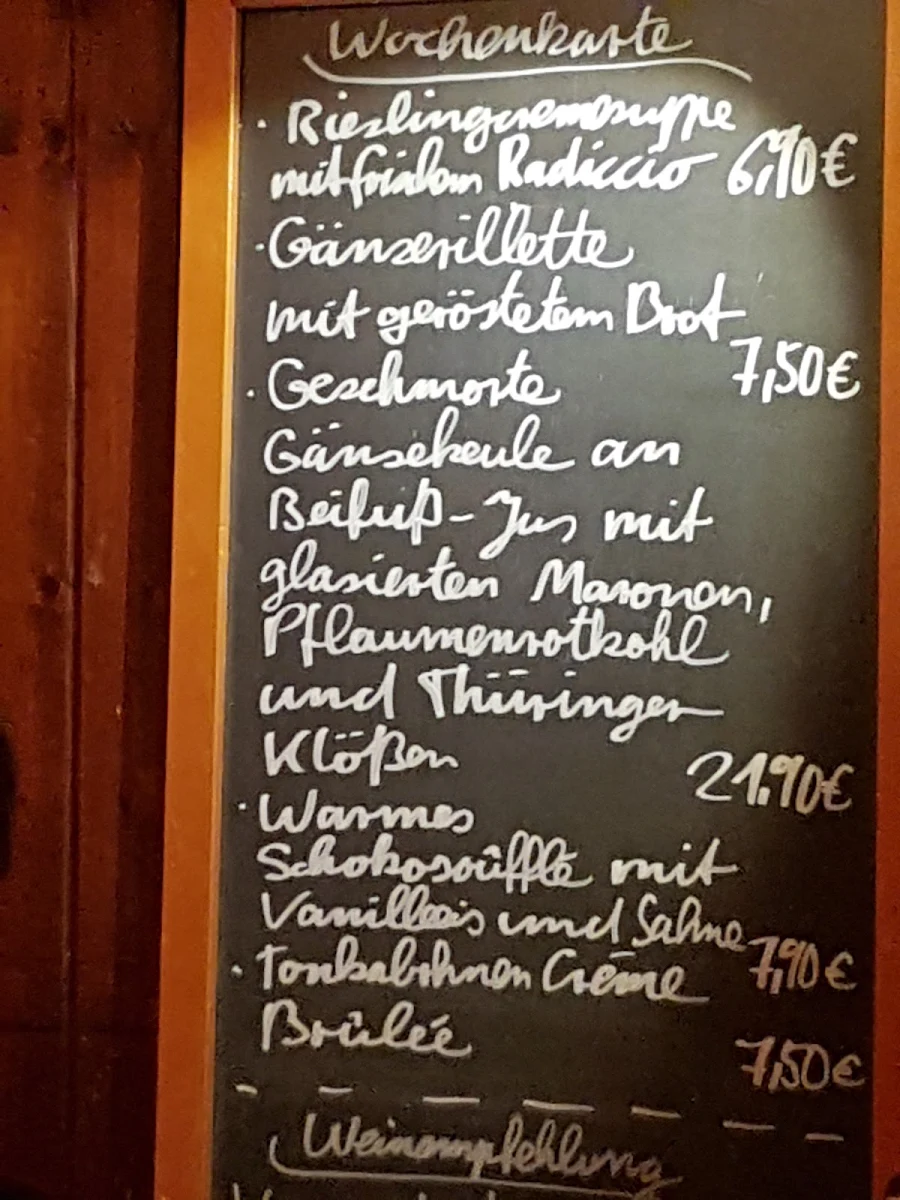 Wochenkarte
· Rieslingcremesuppe
mit Radiccio 6,90€
· Gänserillette
mit geröstetem Brot
7,50€
· Geschmorte
Gänsekeule an
Beifuß-Jus mit
glasierten Maronen,
Pflaumenrotkohl
und Thüringer
Klößen 21.90€
· Warmes
Schokosoûfflé mit
Vanilleeis und Sahne
7,90€
· Tonkabohnen Créme
Brûlée
7,50€
Weinempfehlung